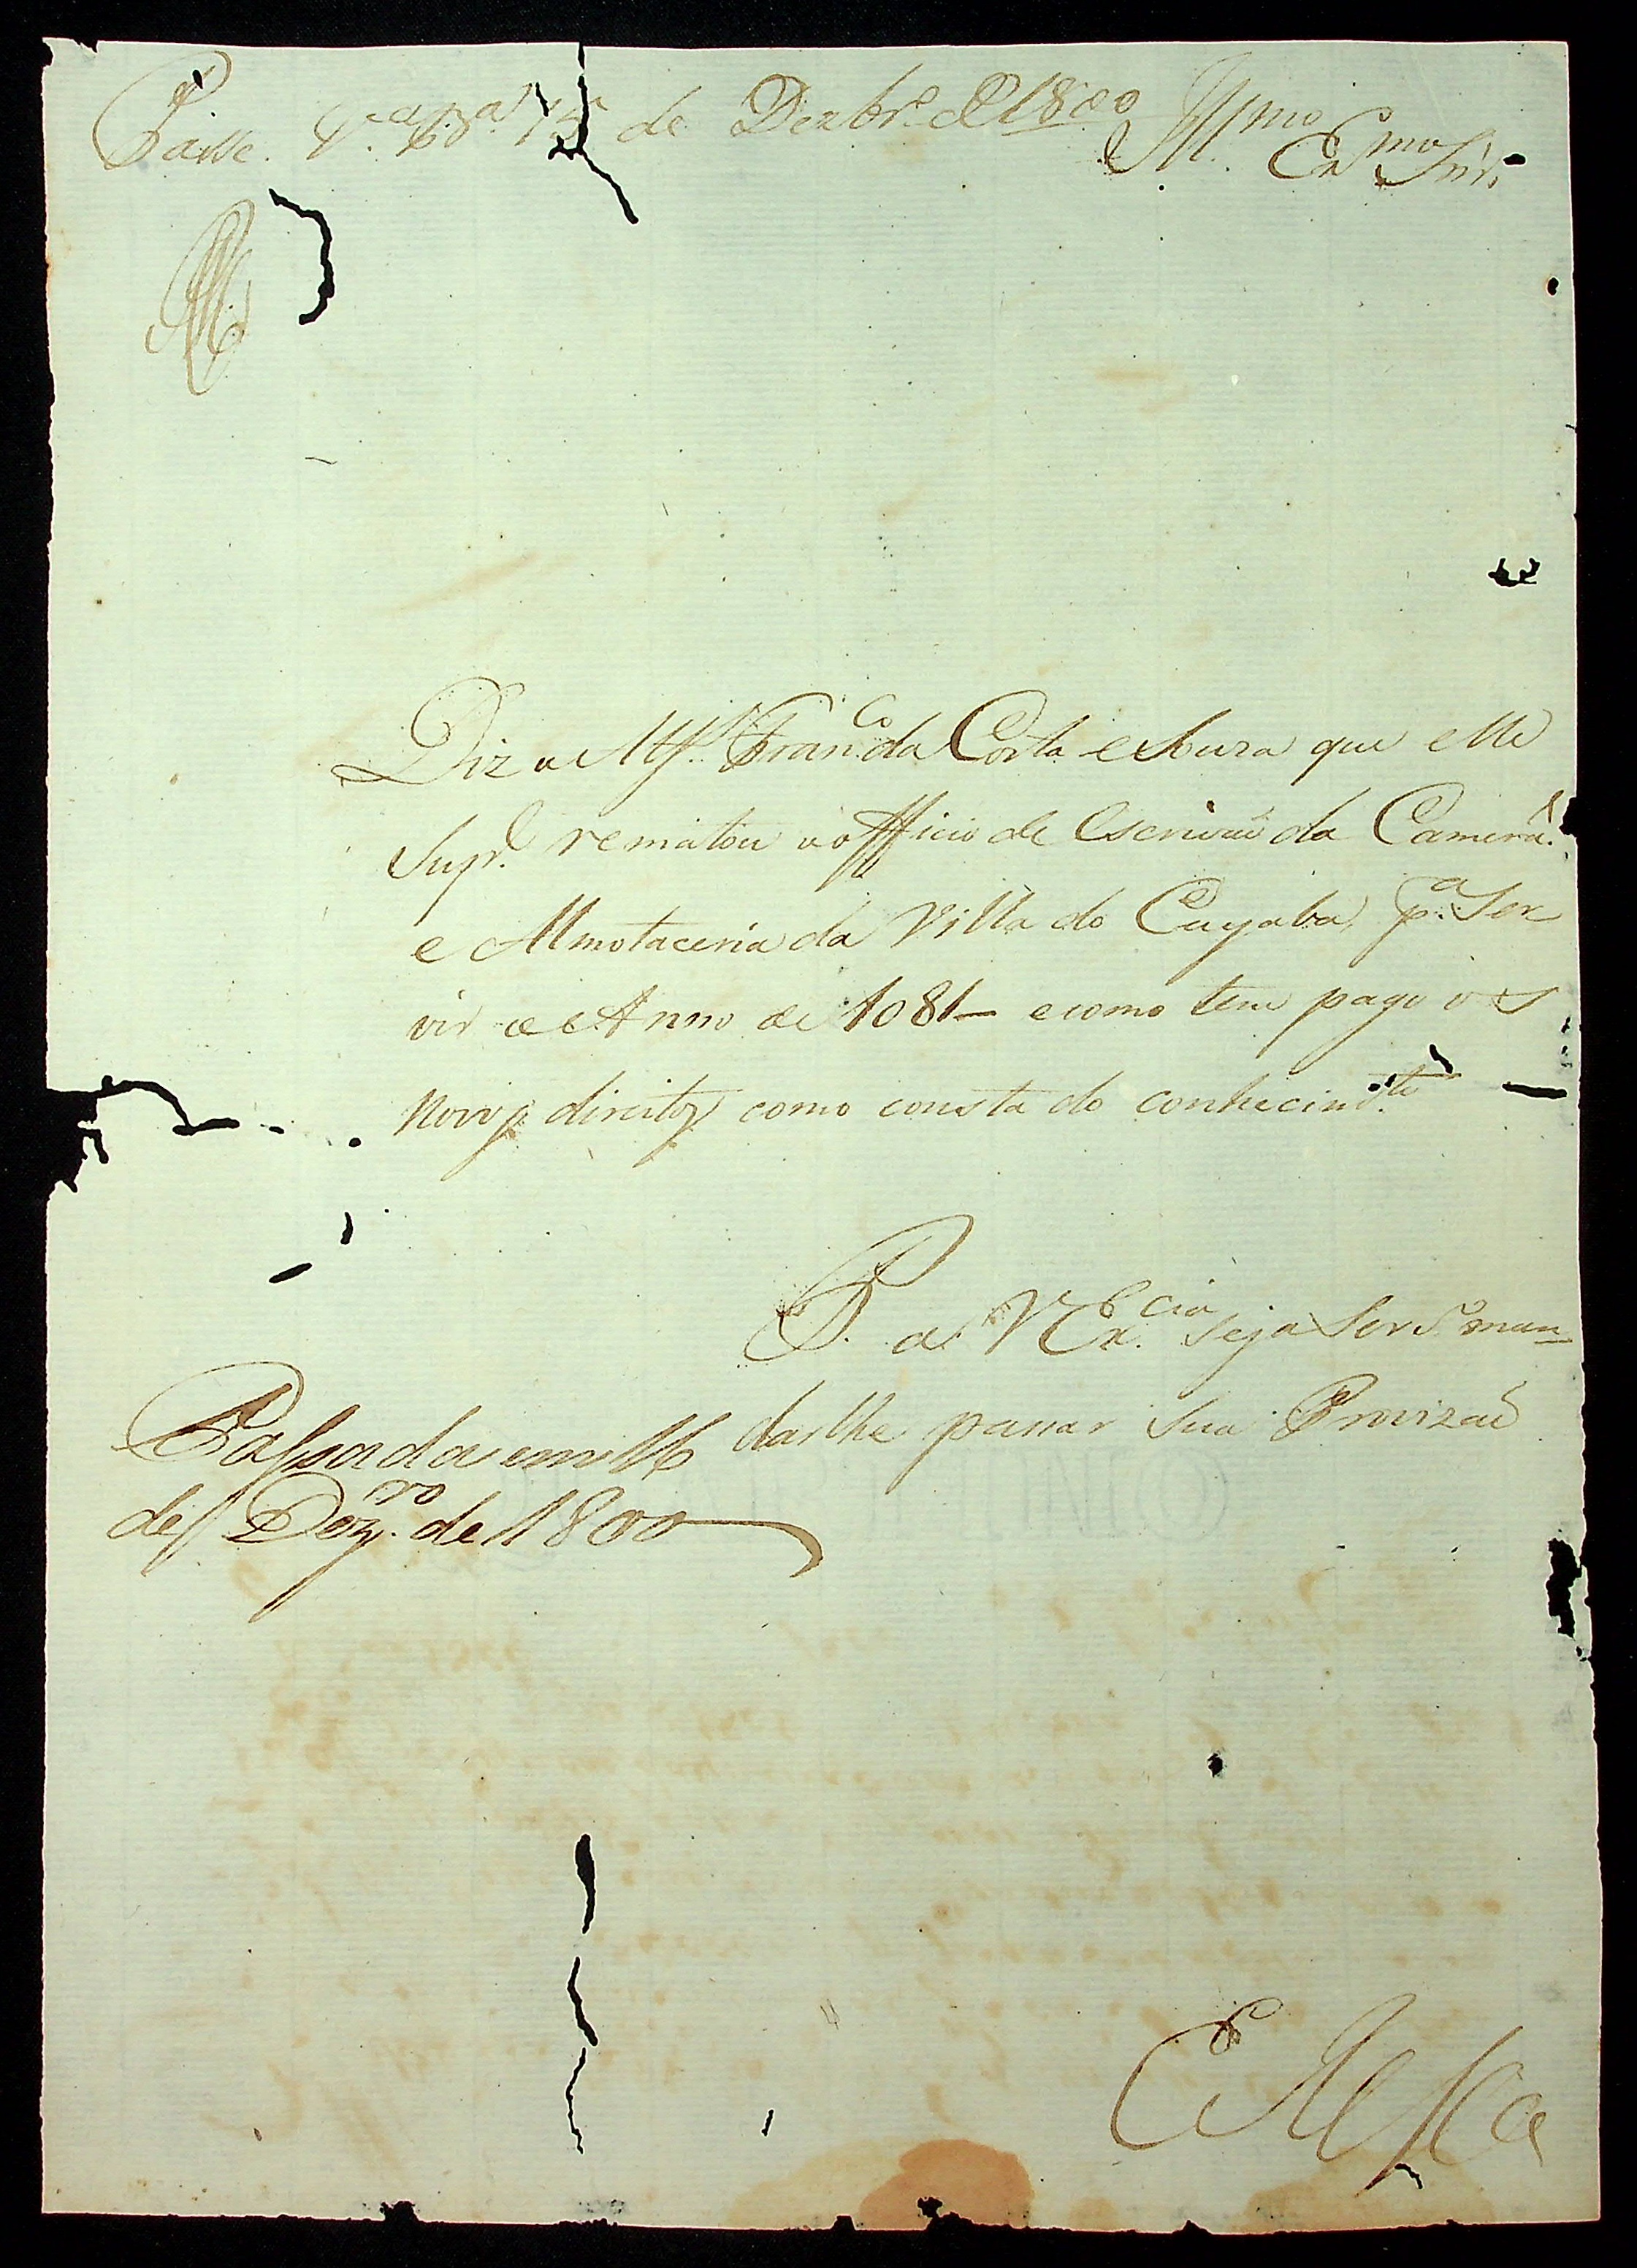 Passe. V.ª B.ª 15 de Dezbr.º de 1800
Ill.mo Ex.mo Snr.
Diz o Alf.s Fran.co da Costa e Souza que elle
Sup.e rematou o officio de Escrivaõ da Camera
e Almotaceria da Villa do Cuyaba, p.ª Ser
vir o Anno de 1081 – e como tem pago os
novos direitos como consta do conhecim.to
P. a V Ex.cia seja Serv.º man
darlhe passar sua Provizaõ
Passada em 16
de Dezr.º de 1800
E R M.ce